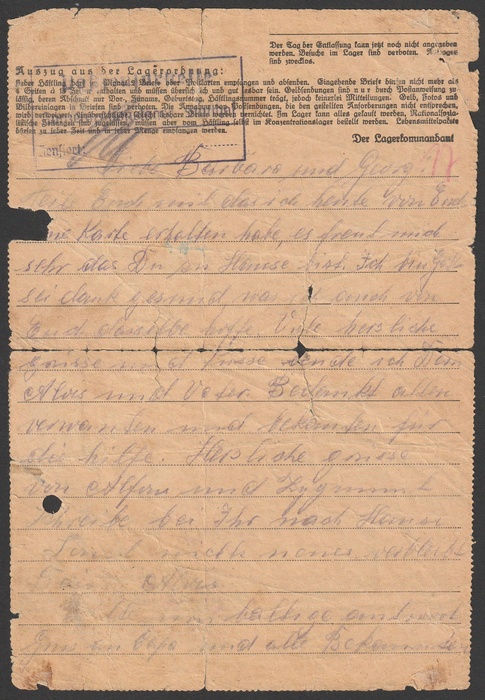 Der Tag der Entlassung kann jetzt noch nicht angegeben
werden. Besuche im Lager sind verboten. Anfragen
sind zwecklos.
Auszug aus der Lagerordnung:
Jeder Häftling darf im Monat 2 Briefe oder Postkarten empfangen und absenden. Eingehende Briefe dürfen nicht mehr als
4 Seiten à 15 Zeilen enthalten und müssen übersichtlich und gut lesbar sein. Geldsendungen sind nur durch Postanweisung zu-
lässig, deren Abschnitt nur Vor-, Zuname, Geburtstag, Häftlingsnummer trägt, jedoch keinerlei Mitteilungen. Geld, Fotos und
Bildereinlagen in Briefen sind verboten. Die Annahme von Postsendungen, die den gestellten Anforderungen nicht entsprechen,
wird verweigert. Unübersichtliche, schlecht lesbare Briefe werden vernichtet. Im Lager kann alles gekauft werden. Nationalsozia-
listische Zeitungen sind zugelassen, müssen aber vom Häftling selbst im Konzentrationslager bestellt werden. Lebensmittelpakete
dürfen zu jeder Zeit und in jeder Menge empfangen werden.
Der Lagerkommandant
Liebe Barbara und Georg!
Euch und das ich heute von Euch
eine Karte erhalten habe, es freut mich
sehr das Du zu Hause bist. Ich bin Gott
sei dank gesund was ich auch von
Euch dasselbe hoffe. Viele herzliche
Grüsse und Küsse sende ich Dein
Alois und Vater. Bedankt allen
verwanten und bekanten für
die hilfe. Herzliche grüsse
von und Zygmunt
schreibe bei Ihr nach Hause
Sonst nichts neues verbleibt
Alois
um baldige antwort
und alle Bekannten